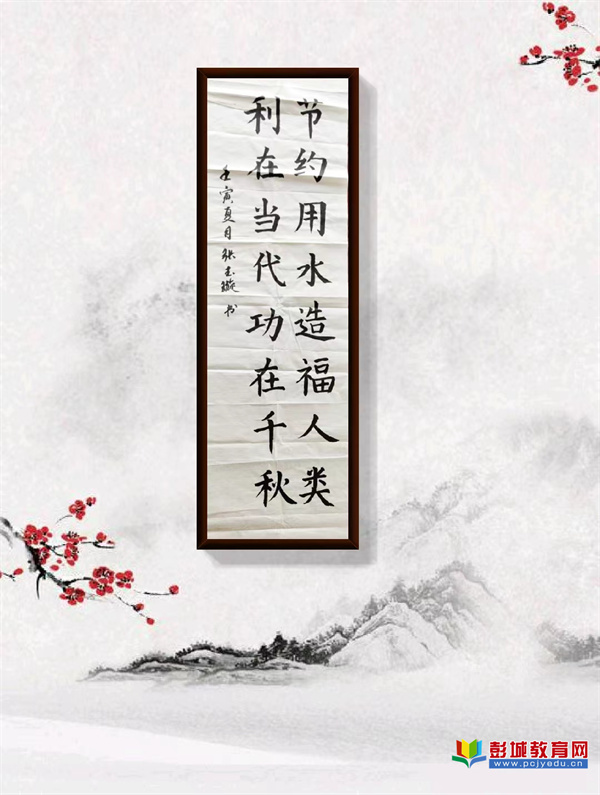 节约用水造福人类
利在当代功在千秋
壬寅夏月张玉璇书
彭城教育网
www.pcjyedu.cn